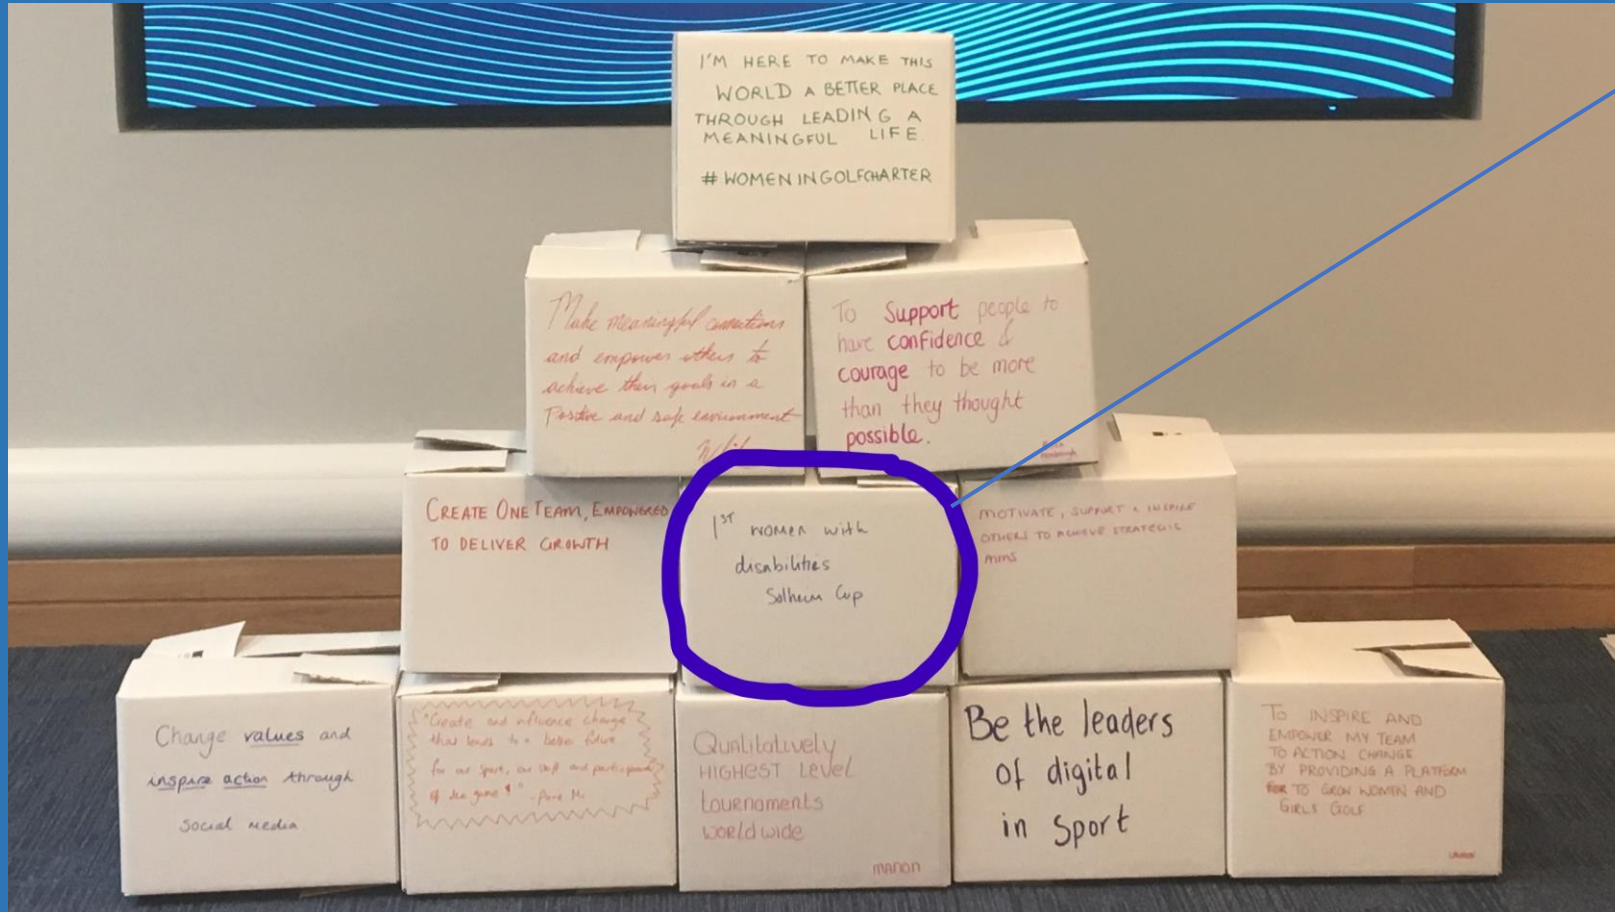 I'M HERE TO MAKE THIS
WORLD A BETTER PLACE
THROUGH LEADING A
MEANINGFUL LIFE.
#WOMENINGOLFCHARTER
Make meaningful connections
and empower others to
achieve their goals in a
Positive and safe environment
To Support people to
have confidence &
courage to be more
than they thought
possible.
CREATE ONE TEAM, EMPOWERED
TO DELIVER GROWTH
1ST women with
disabilities
Solheim Cup
MOTIVATE, SUPPORT & INSPIRE
OTHERS TO ACHIEVE STRATEGIC
AIMS
Change values and
inspire action through
social media
"Create and influence change
that leads to a better future
for our sport, our staff and participants
of the game
Qualitatively
HIGHEST LEVEL
tournaments
worldwide
MANON
Be the leaders
of digital
in Sport
To INSPIRE AND
EMPOWER MY TEAM
TO ACTION CHANGE
BY PROVIDING A PLATFORM
TO GROW WOMEN AND
GIRLS GOLF